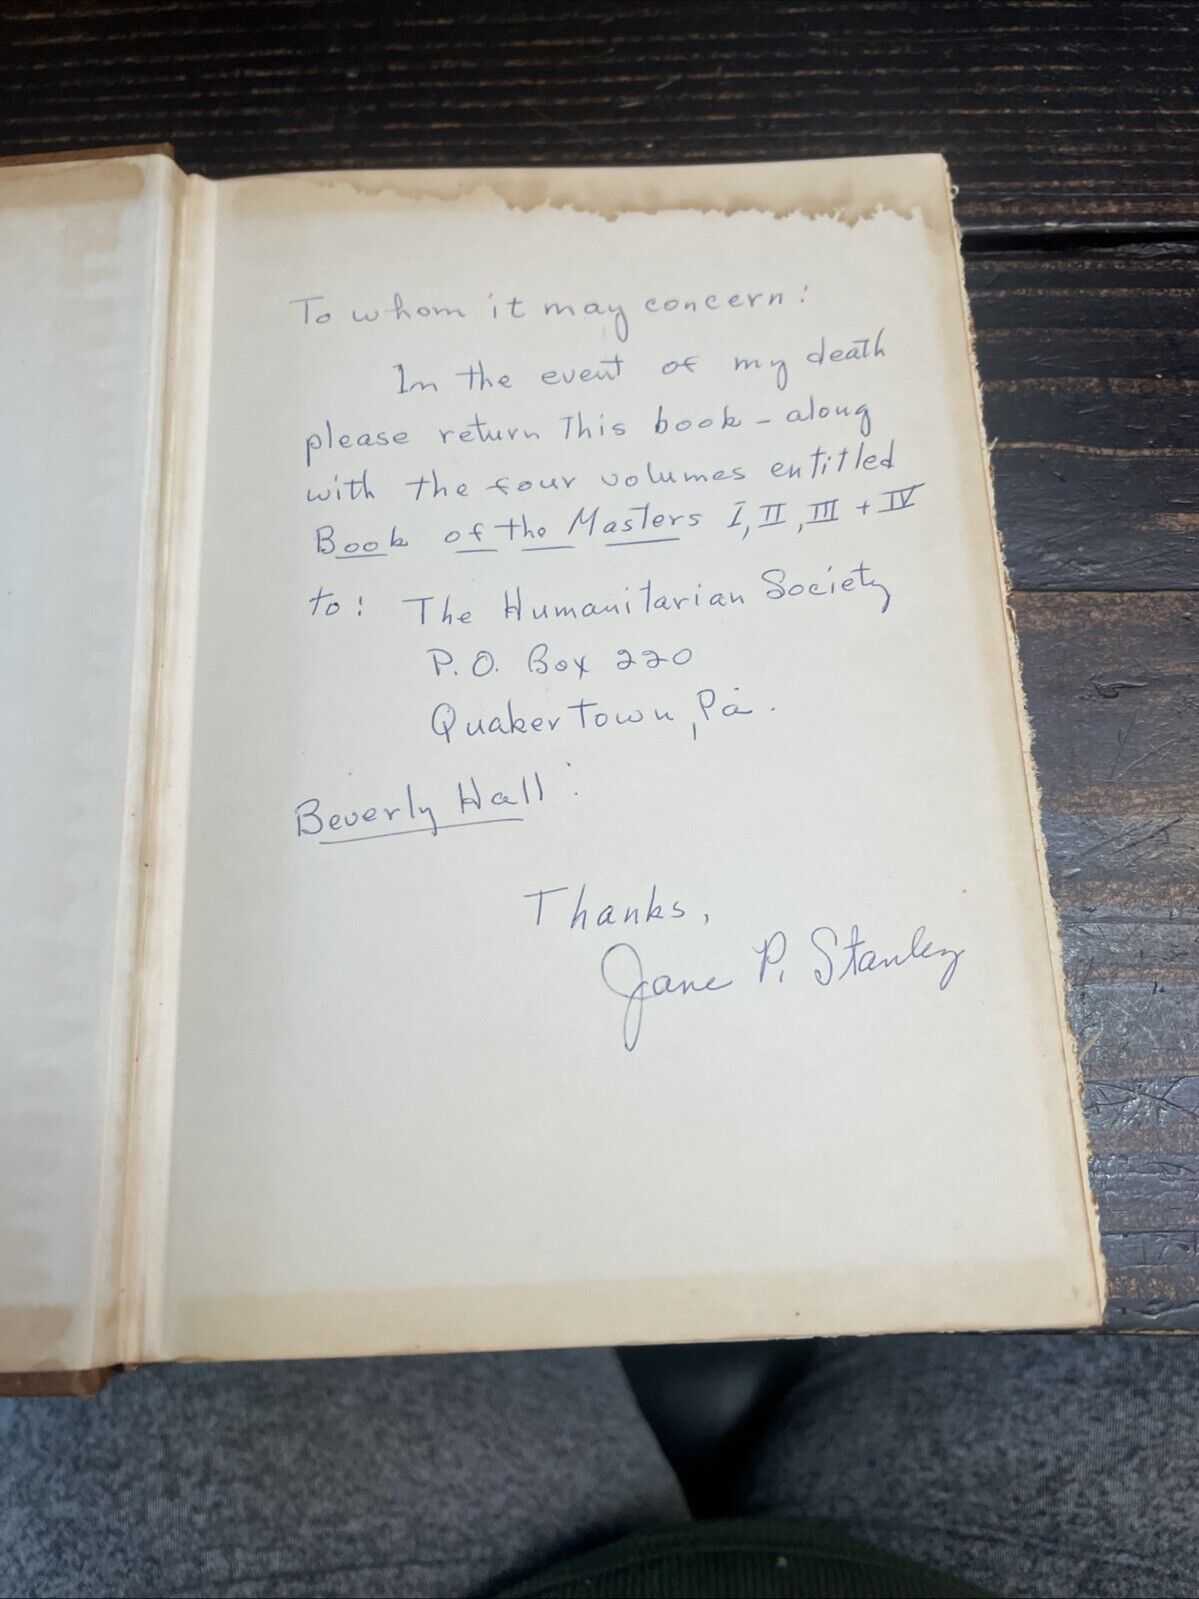 To whom it may concern:
In the event of my death
please return this book - along
with the four volumes entitled
Book of the Masters I, II, III + IV
to: The Humanitarian Society
P.O. Box 220
Quakertown, Pa.
Beverly Hall:
Thanks,
Jane P. Stanley